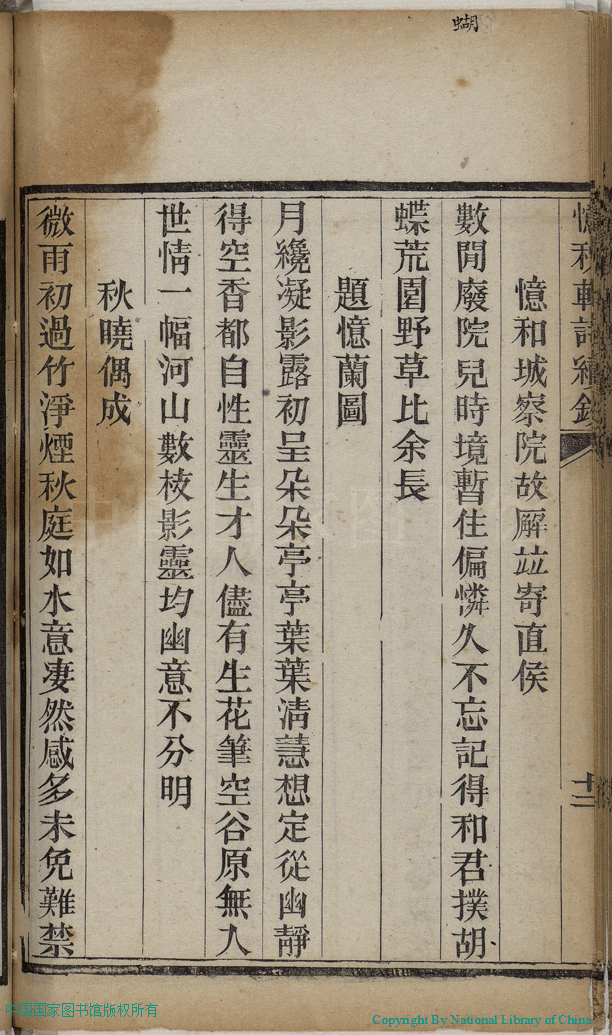 蝴
憶秋軒詩續鈔
十二
憶和城察院故廨並寄直侯
數閒廢院兒時境暫住偏憐久不忘記得和君撲胡
蝶荒園野草比余長
題憶蘭圖
月纔凝影露初呈朵朵亭亭葉葉清慧想定從幽靜
得空香都自性靈生才人儘有生花筆空谷原無人
世情一幅河山數枝影靈均幽意不分明
秋曉偶成
微雨初過竹淨煙秋庭如水意凄然感多未免難禁
中国国家图书馆版权所有
Copyright By National Library of China